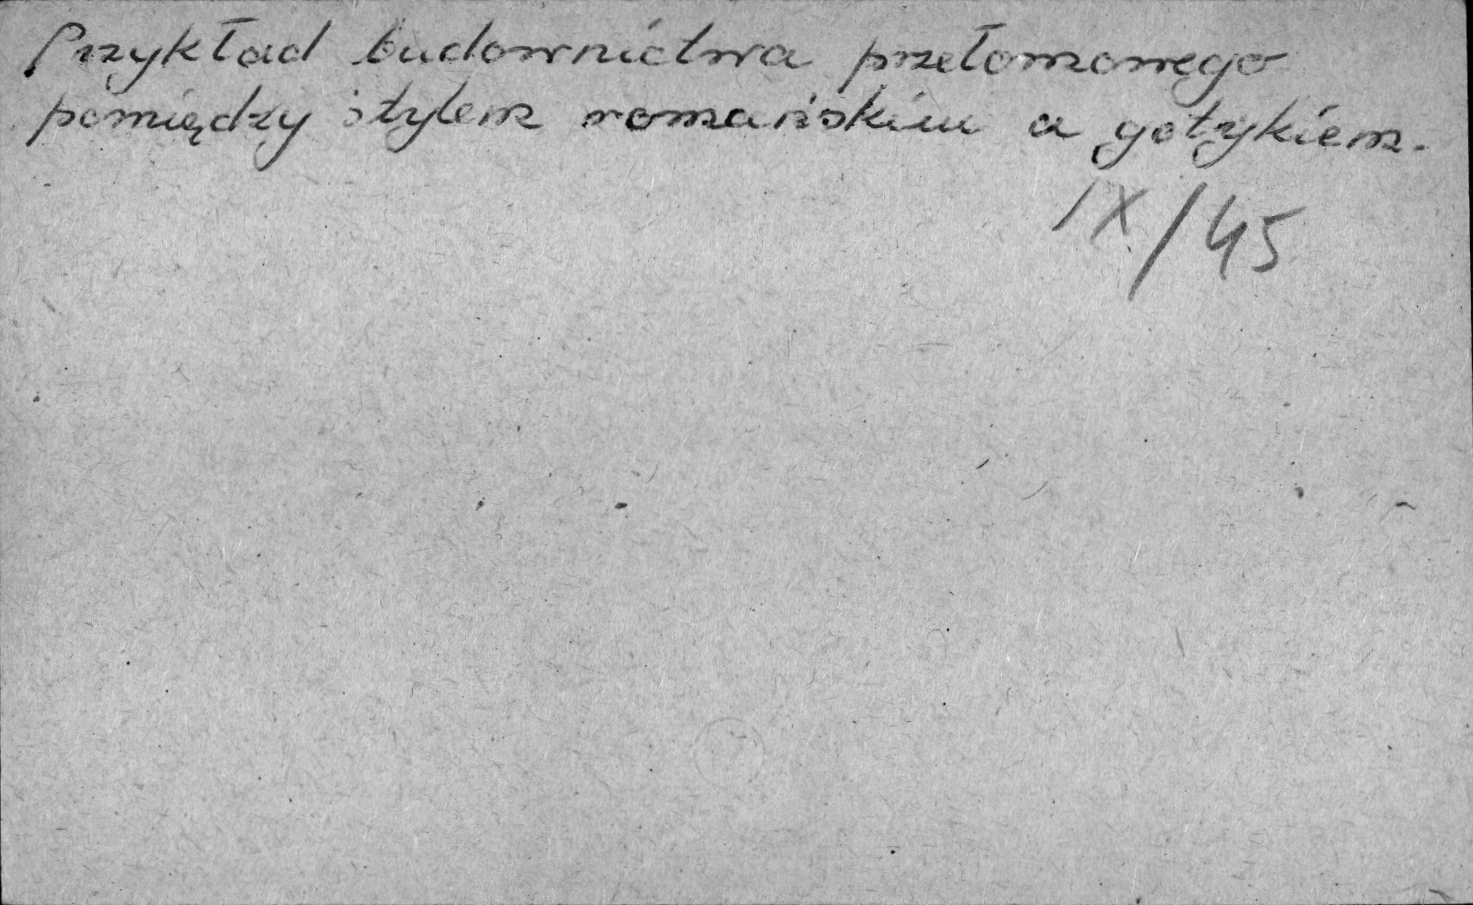 Przykład budownictwa przełomowego
pomiędzy stylem romańskim a gotykiem.
IX/45